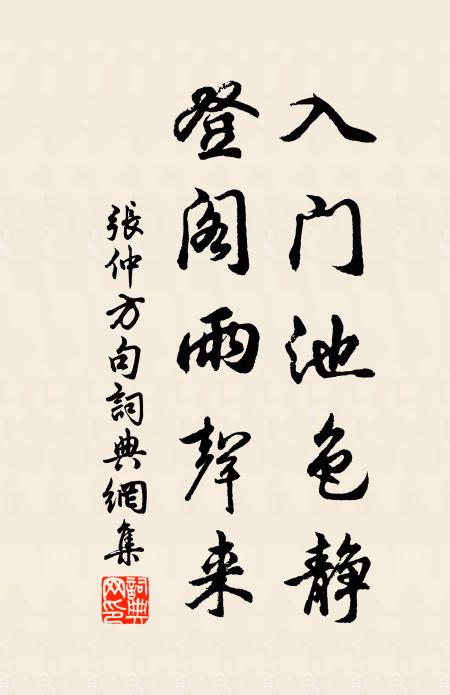 入门池色静
登阁雨聲来
張仲方句詞典網集
詞典网印